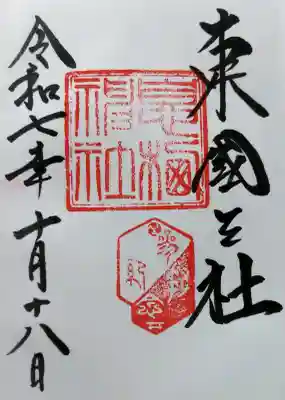 東國三社
息栖
神社
令和七年十月十八日